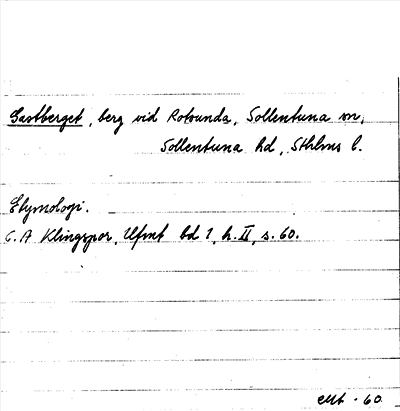 Gastberget, berg vid Rotsunda, Sollentuna sn,
Sollentuna hd, Sthlms l.
Etymologi.
C. A Klingspor, Ufmt bd 1, h. II, s. 60.
60